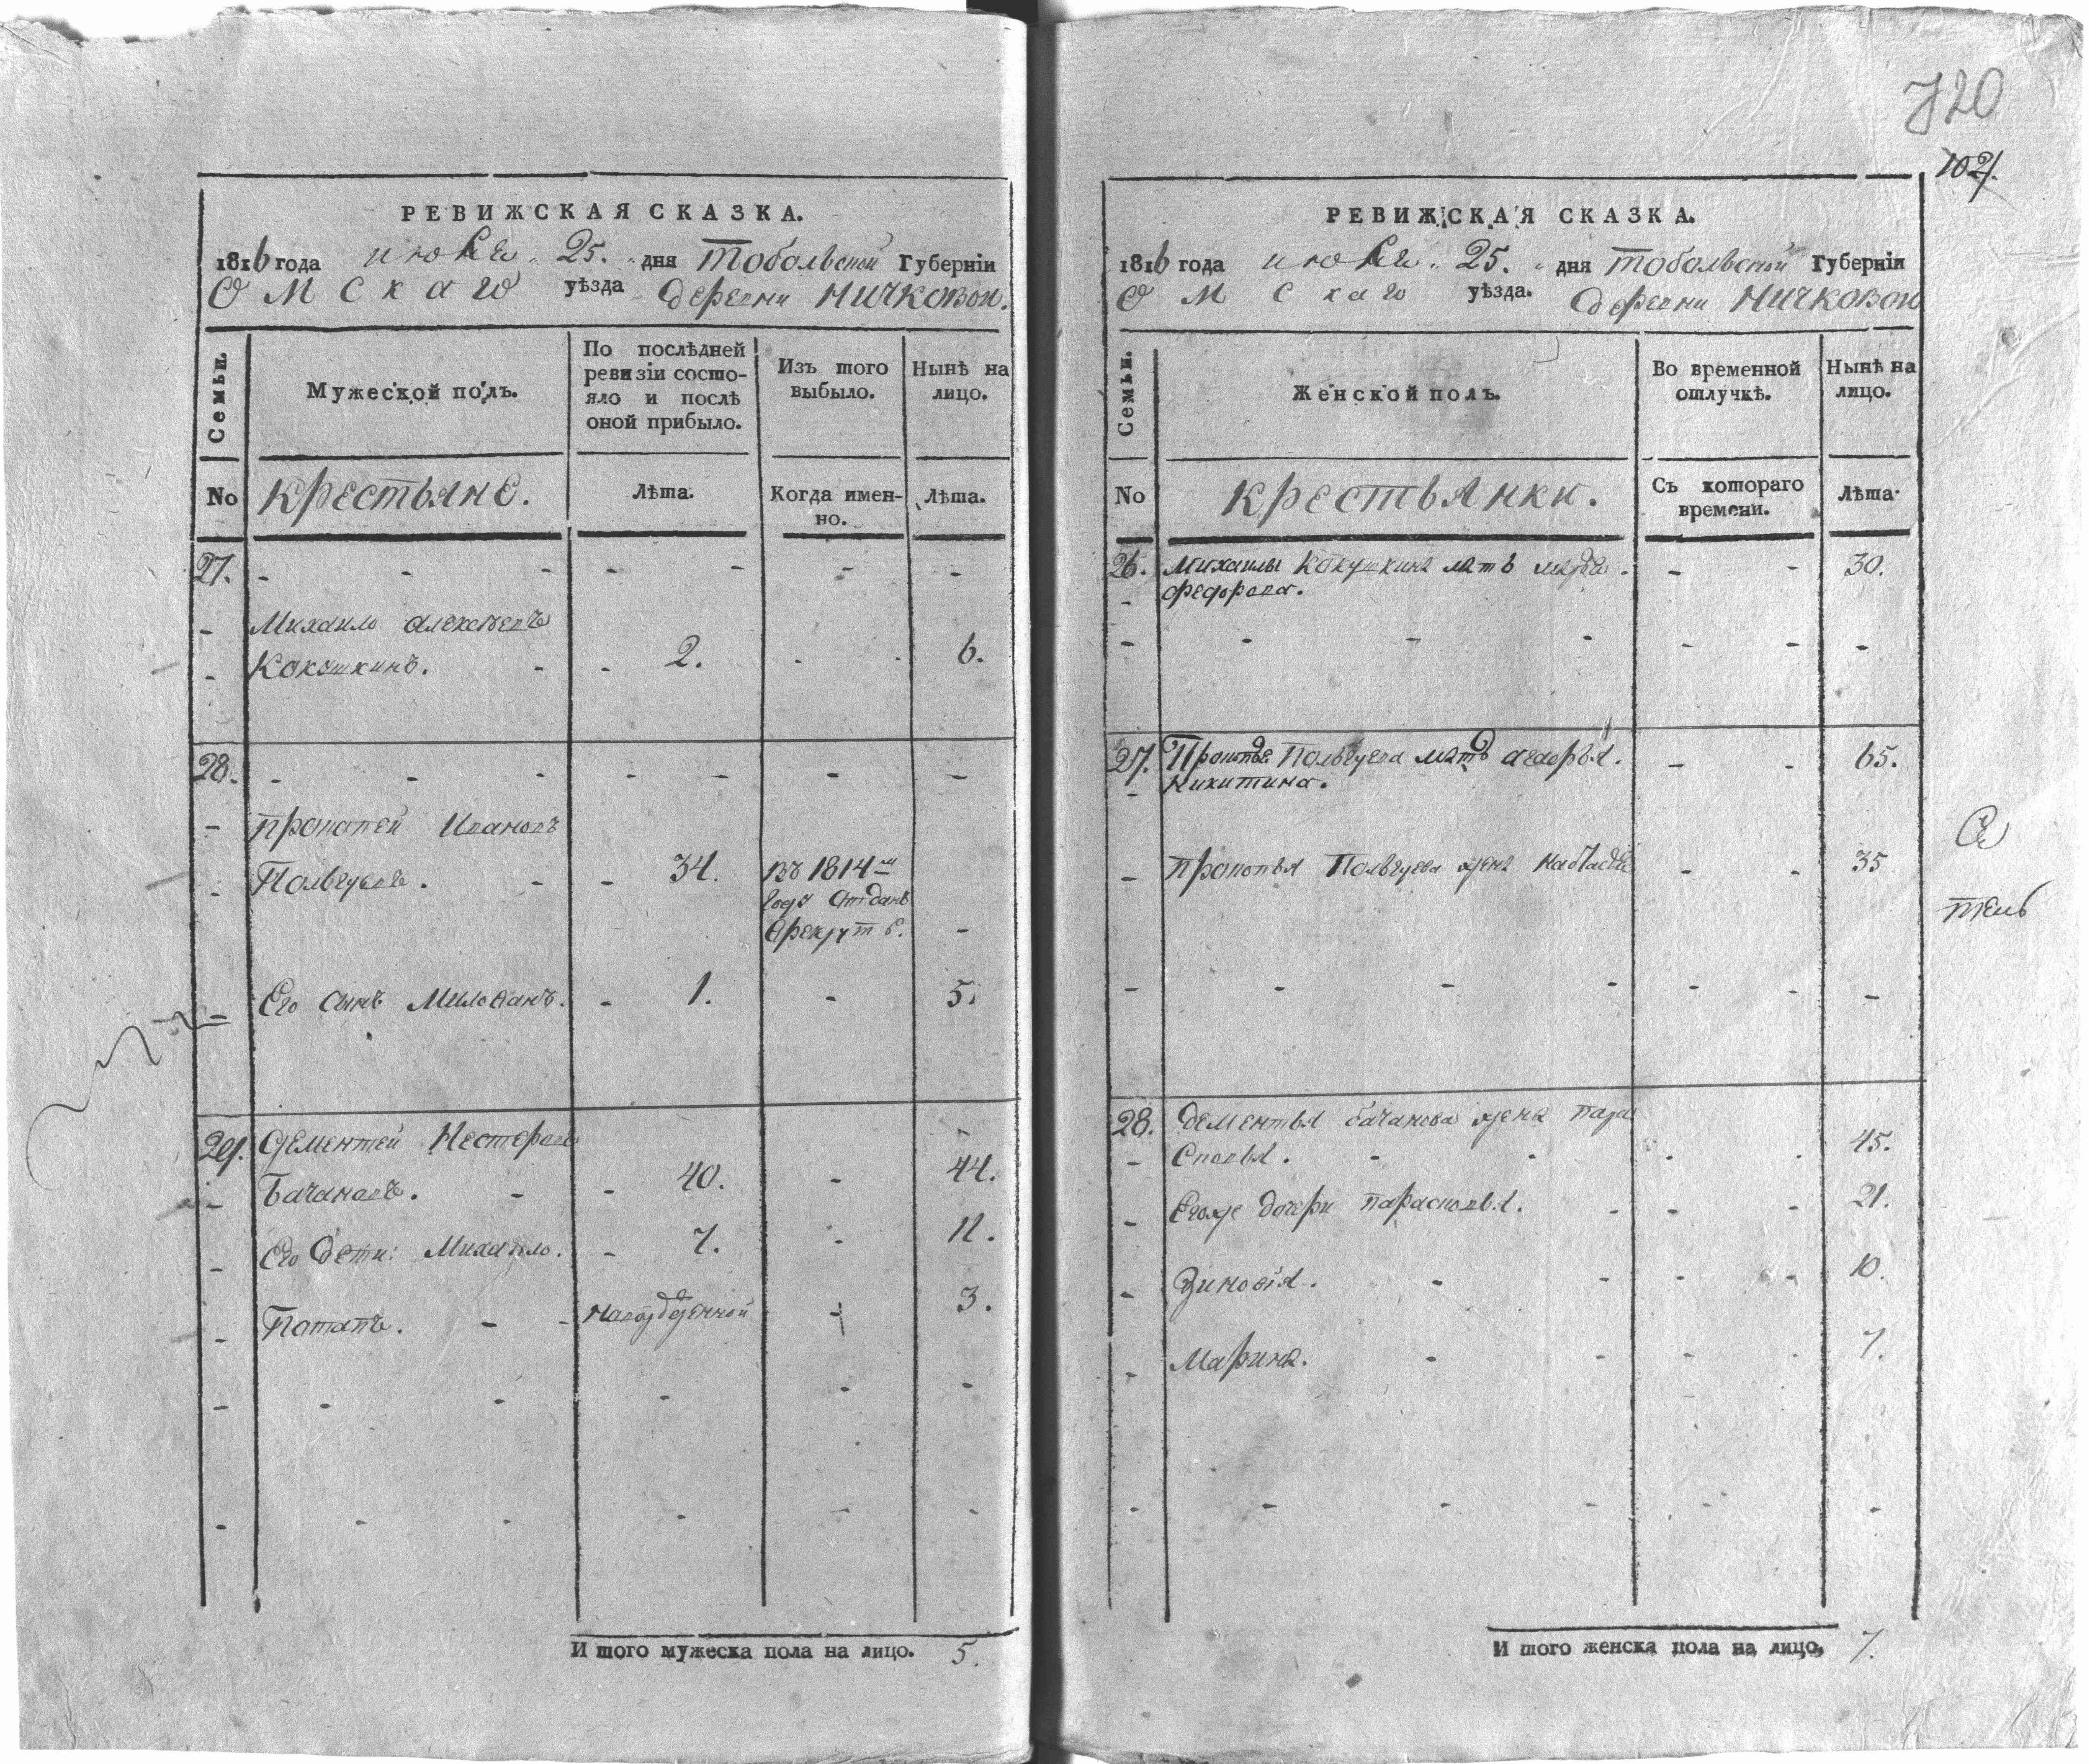 РЕВИЖСКАЯ СКАЗКА.
1816 года июля 25. дня Тобольской Губерніи
Омскаго уѣзда деревни Ничковой.
Семьи.
Мужеской полъ.
По послѣдней
ревизіи состо-
яло и послѣ
оной прибыло.
Изъ того
выбыло.
Нынѣ на
лицо.
No
крестьяне.
Лѣта.
Когда имен-
но.
Лѣта.
27.
Михаило Алексѣевъ
Кокушкинъ. 2. 6.
28.
Прокопей Ивановъ
34. въ 1814м
году отданъ
врекруты.
Его сынъ 1. 5.
29. Дементей Нестеровъ
Бачановъ. 40. 44.
Его дети: Михайло. 7. 11.
Потапъ. Новорожденной 3.
И того мужеска пола на лицо. 5.
720
102.
РЕВИЖСКАЯ СКАЗКА.
1816 года июля 25. дня Тобольской Губерніи
Омскаго уѣзда. деревни Ничковой
Семьи.
Женской полъ.
Во временной
отлучкѣ.
Нынѣ на
лицо.
No
крестьянки.
Съ котораго
времени.
Лѣта.
26. Михаилы Кокушкина мать 30.
Федорова.
27. мать 65.
Никитина.
Прокопья жена 35
28. Дементья Бачанова жена пара
сковья. 45.
Егоже дочери парасковья. 21.
Зиновія. 10.
Марина. 7.
И того женска пола на лицо, 7.